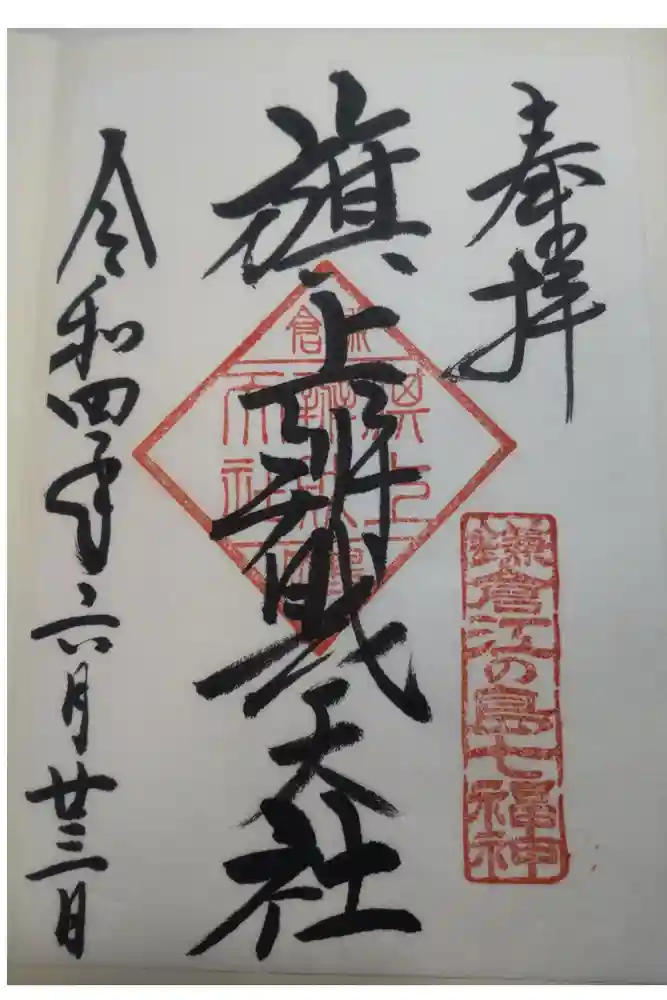 奉拝
鎌倉江の島七福神
旗上辨財天社
令和四年六月廿三日